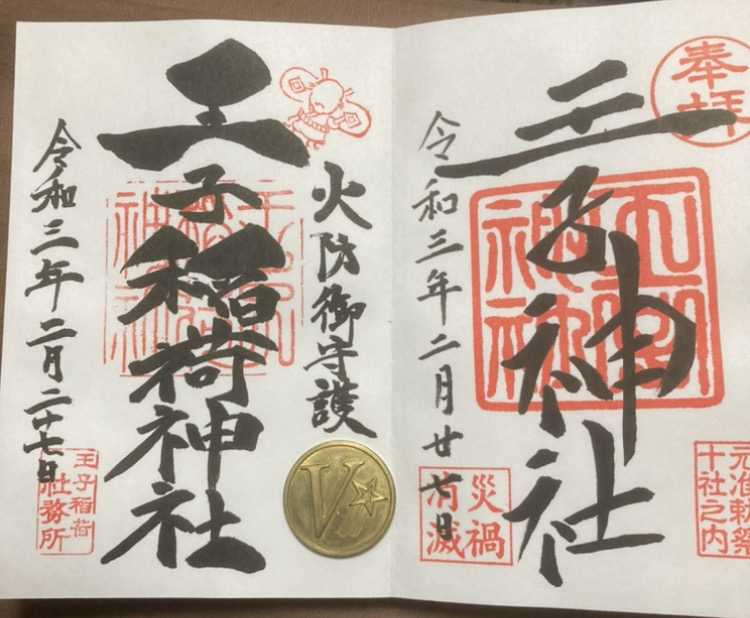 奉拝
王子神社
王子神社
令和三年二月廿七日
元准勅祭
十社之内
災禍
消滅
火防御守護
王子稲荷神社
令和三年二月二十七日
王子稲荷
社務所
V